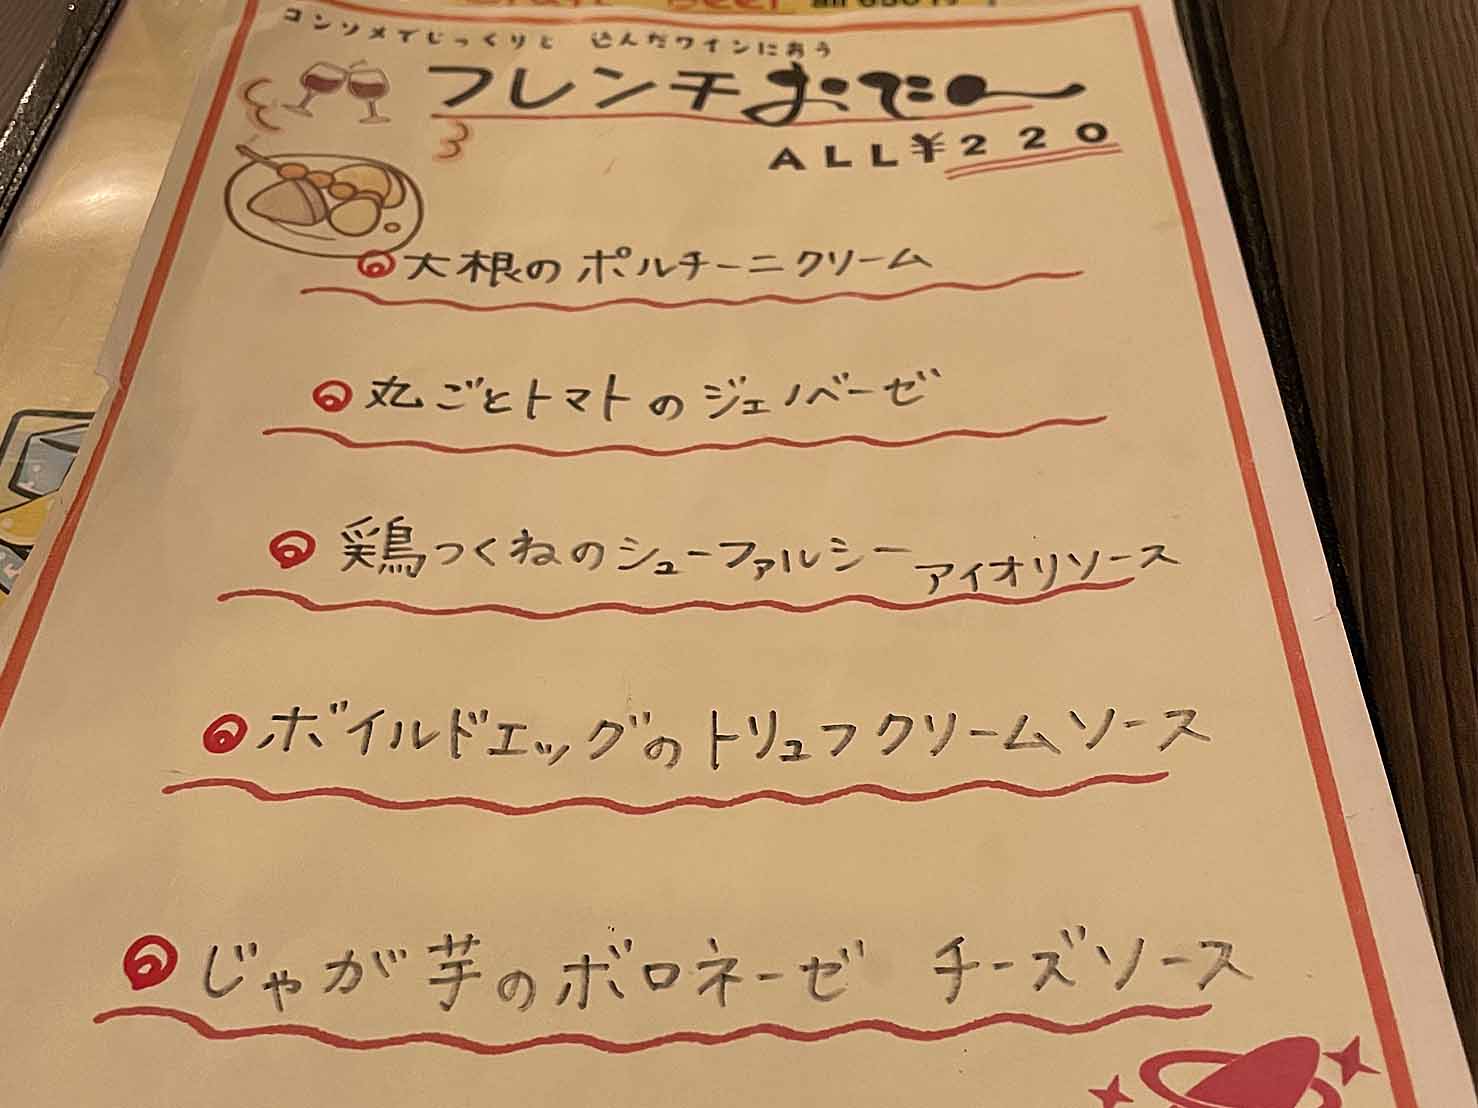 コンソメでじっくりと 込んだワインにあう
フレンチおでん
ALL¥220
大根のポルチーニクリーム
丸ごとトマトのジェノベーゼ
鶏つくねのシューファルシー アイオリソース
ボイルドエッグのトリュフクリームソース
じゃが芋のボロネーゼ チーズソース